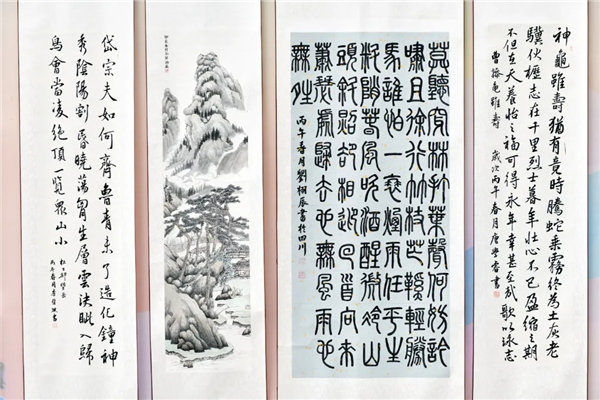 神龜雖壽猶有竟時騰蛇乘霧終為土灰老
驥伏櫪志在千里烈士暮年壯心不已盈縮之期
不但在天養怡之福可得永年幸甚至哉歌以詠志
曹操龜雖壽 歲次丙午春月唐學睿書
莫聽穿林打葉聲何妨吟
嘯且徐行竹杖芒鞋輕勝
馬誰怕一蓑煙雨任平生
料峭春風吹酒醒微冷山
頭斜照卻相迎回首向來
蕭瑟處歸去也無風雨也
無晴
丙午春月劉栩辰書於四川
岱宗夫如何齊魯青未了造化鐘神
秀陰陽割昏曉蕩胷生層雲決眥入歸
鳥會當凌絕頂一覽眾山小
杜工部望岳
丙午春月